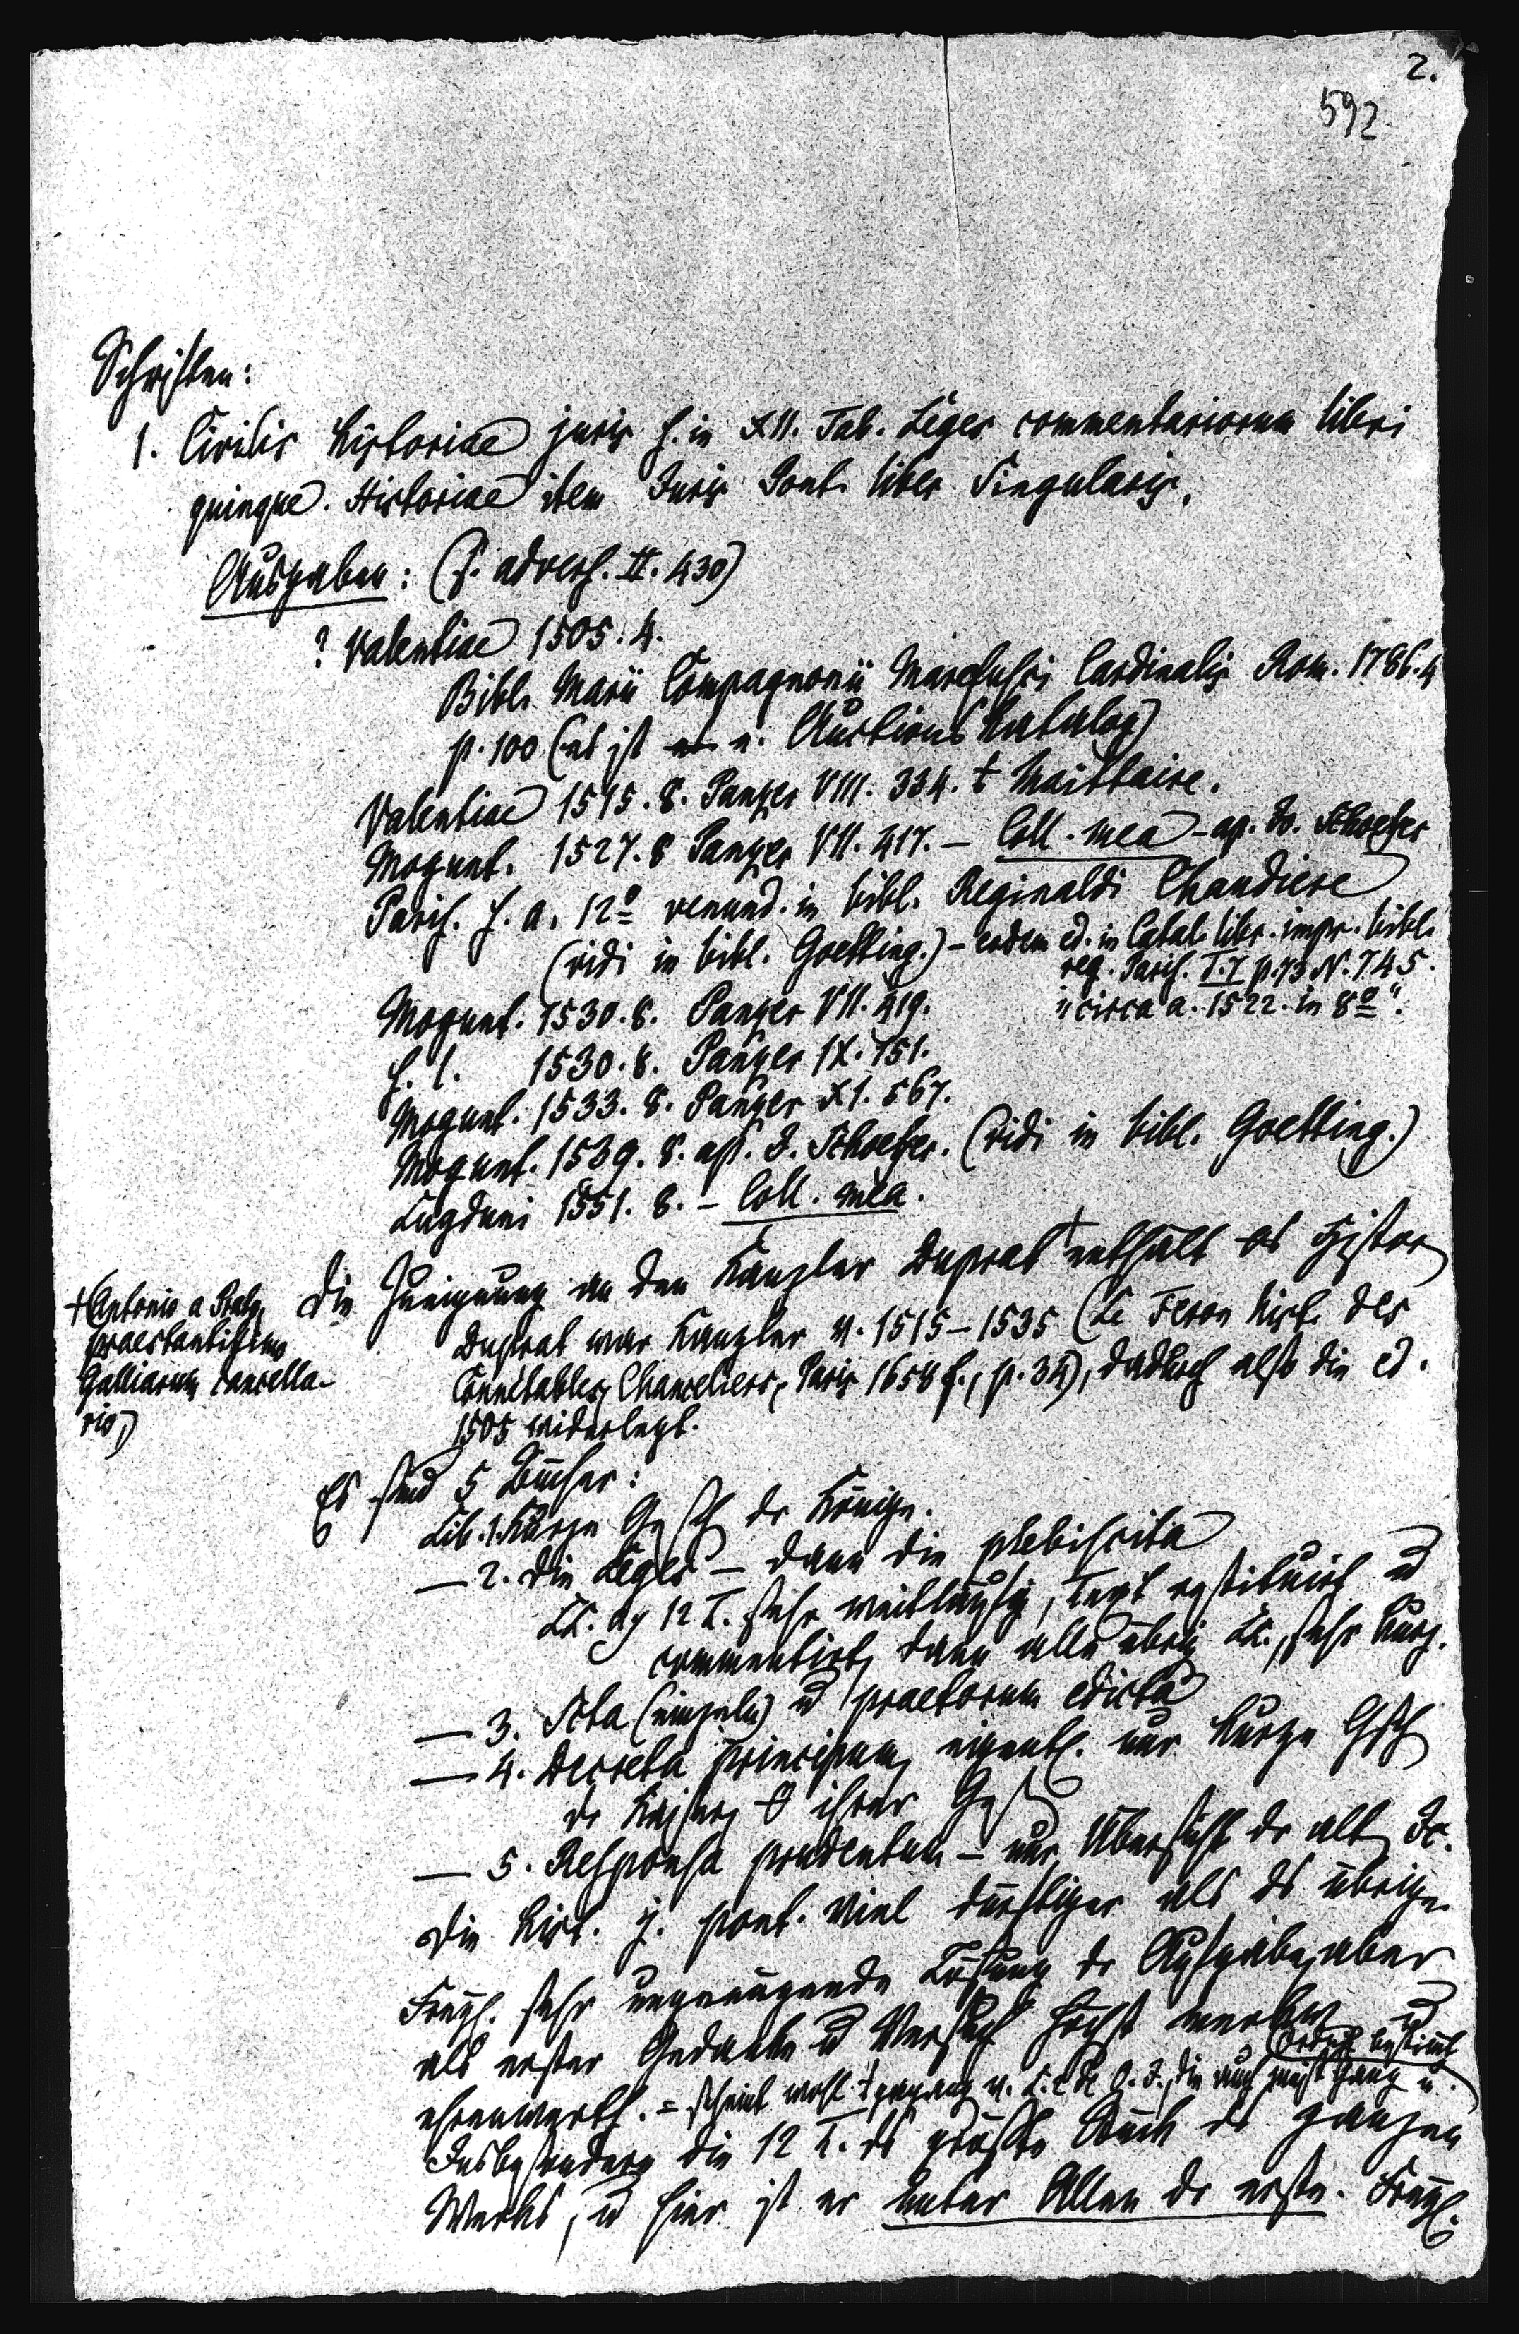 2.
592
Schriften:
1. Civilis historiae juris s. in XII. Tab. Leges commentariorum libri
quinque. Historiae item Juris Pont. liber singularis.
Ausgaben: (s. advers. II. 430)
? Valentiae 1505. 4.
Bibl. Marii Compagnonii Marefusci Cardinalis Rom. 1786. 4
p. 100 (es ist e. Auctions Katalog)
Valentiae 1515. 8. Panzer VIII. 334. + Maittaire.
Mogunt. 1527. 8 Panzer VII. 417. – Coll. mea – ap. Jo. Schoeffer
Paris. s. a. 12º venund. in bibl. Reginaldi Chaudiere
(vidi in bibl. Goetting.) – eadem ed. in Catal. libr. impr. bibl.
reg. Paris. T. I p. 73 N. 745.
"circa a. 1522. in 8º".
Mogunt. 1530. 8. Panzer VII. 419.
s. l. 1530. 8. Panzer IX. 151.
Mogunt. 1533. 8. Panzer XI. 567.
Mogunt. 1539. 8. ap. J. Schoeffer. (vidi in bibl. Goetting.)
Lugduni 1551. 8. – Coll. mea.
Die Zueignung an den Kanzler Duprat + enthält
+ (Antonio a Prato
praestantissimo
Galliarum cancella-
rio)
Duprat war Kanzler v. 1515–1535 (Le Feron hist. des
Connétables, Chanceliers, Paris 1658 f., p. 34), dadurch also die ed.
1505 widerlegt.
Es sind 5 Bücher:
Lib. 1. Kurze Gesch der Könige.
— 2. Die Leges – dann die plebiscita
LL. 12 T. sehr weitläufig, Text restituirt u
commentirt, dann alle übrig LL., sehr kurz.
— 3. Scta (einzeln) u praetorum edicta
— 4. Decreta principum, eigentl. nur kurze Gsch
der Kaiser, ihrer Ges
— 5. Responsa prudentum – nur Übersicht der alt Jc.
Die hist. j. pont. viel dürftiger als das übrige
Freyl. sehr ungenügende Lösung der Aufgabe, aber
als erster Gedanke u Versuch höchst merkw u
ehrenwerth. = scheint wohl + v. L. 2 de O. J., die auch meist ganz
Insbesondere die 12 T. das größte Stück des ganzen
Werks, u hier ist er unter Allen der erste. Freyl.